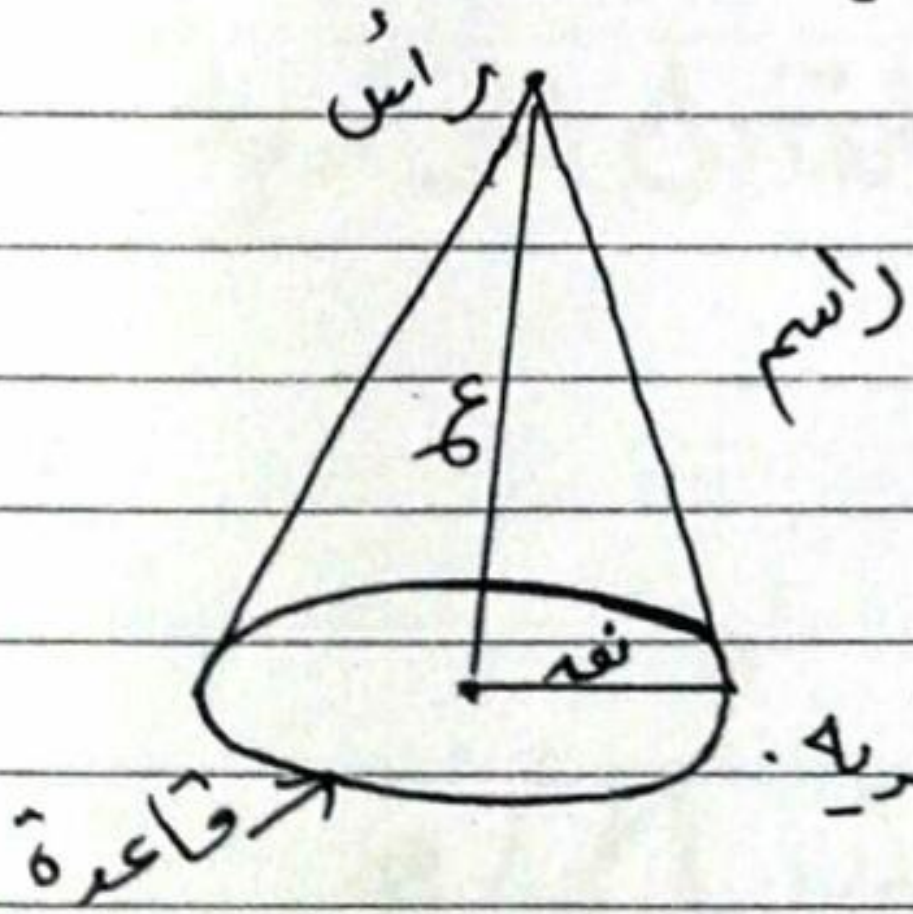 رأس
راسم
ع
نق
قاعدة